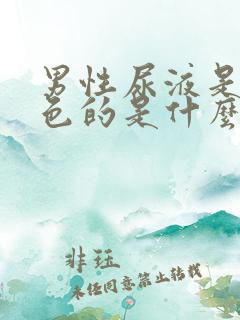 男性尿液是
色的是什麼
非珏
未经同意禁止转载